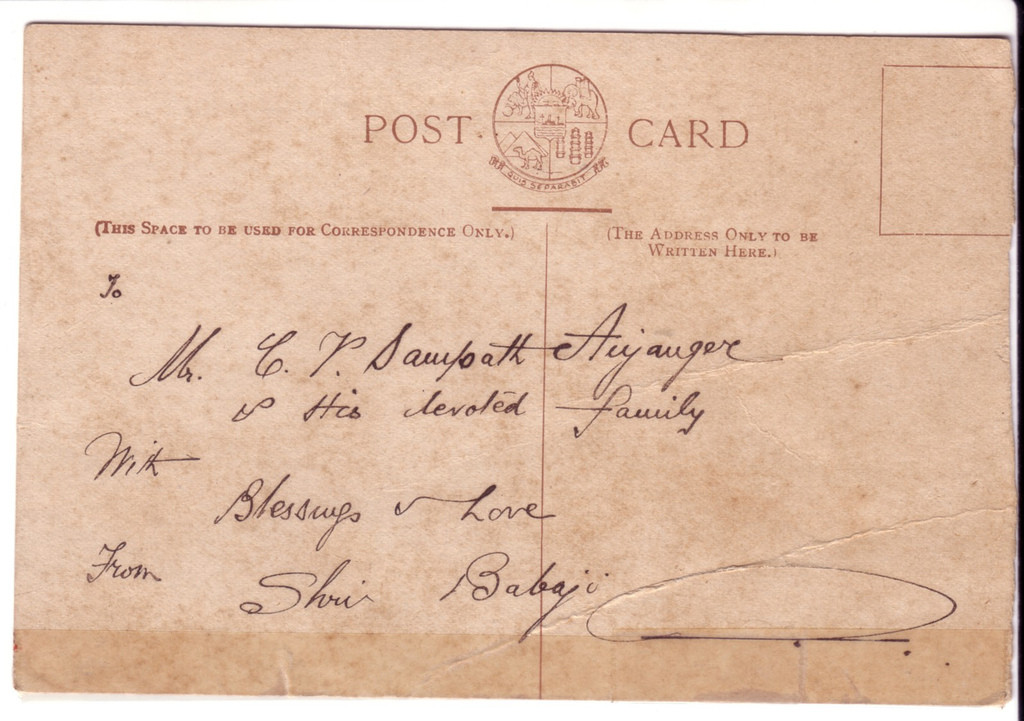 POST CARD
QUIS SEPARABIT
(THIS SPACE TO BE USED FOR CORRESPONDENCE ONLY.)
(THE ADDRESS ONLY TO BE
WRITTEN HERE.)
To
Mr. C. V. Sampath Aiyanger
& His devoted family
With
Blessings & Love
From
Shri Babaji